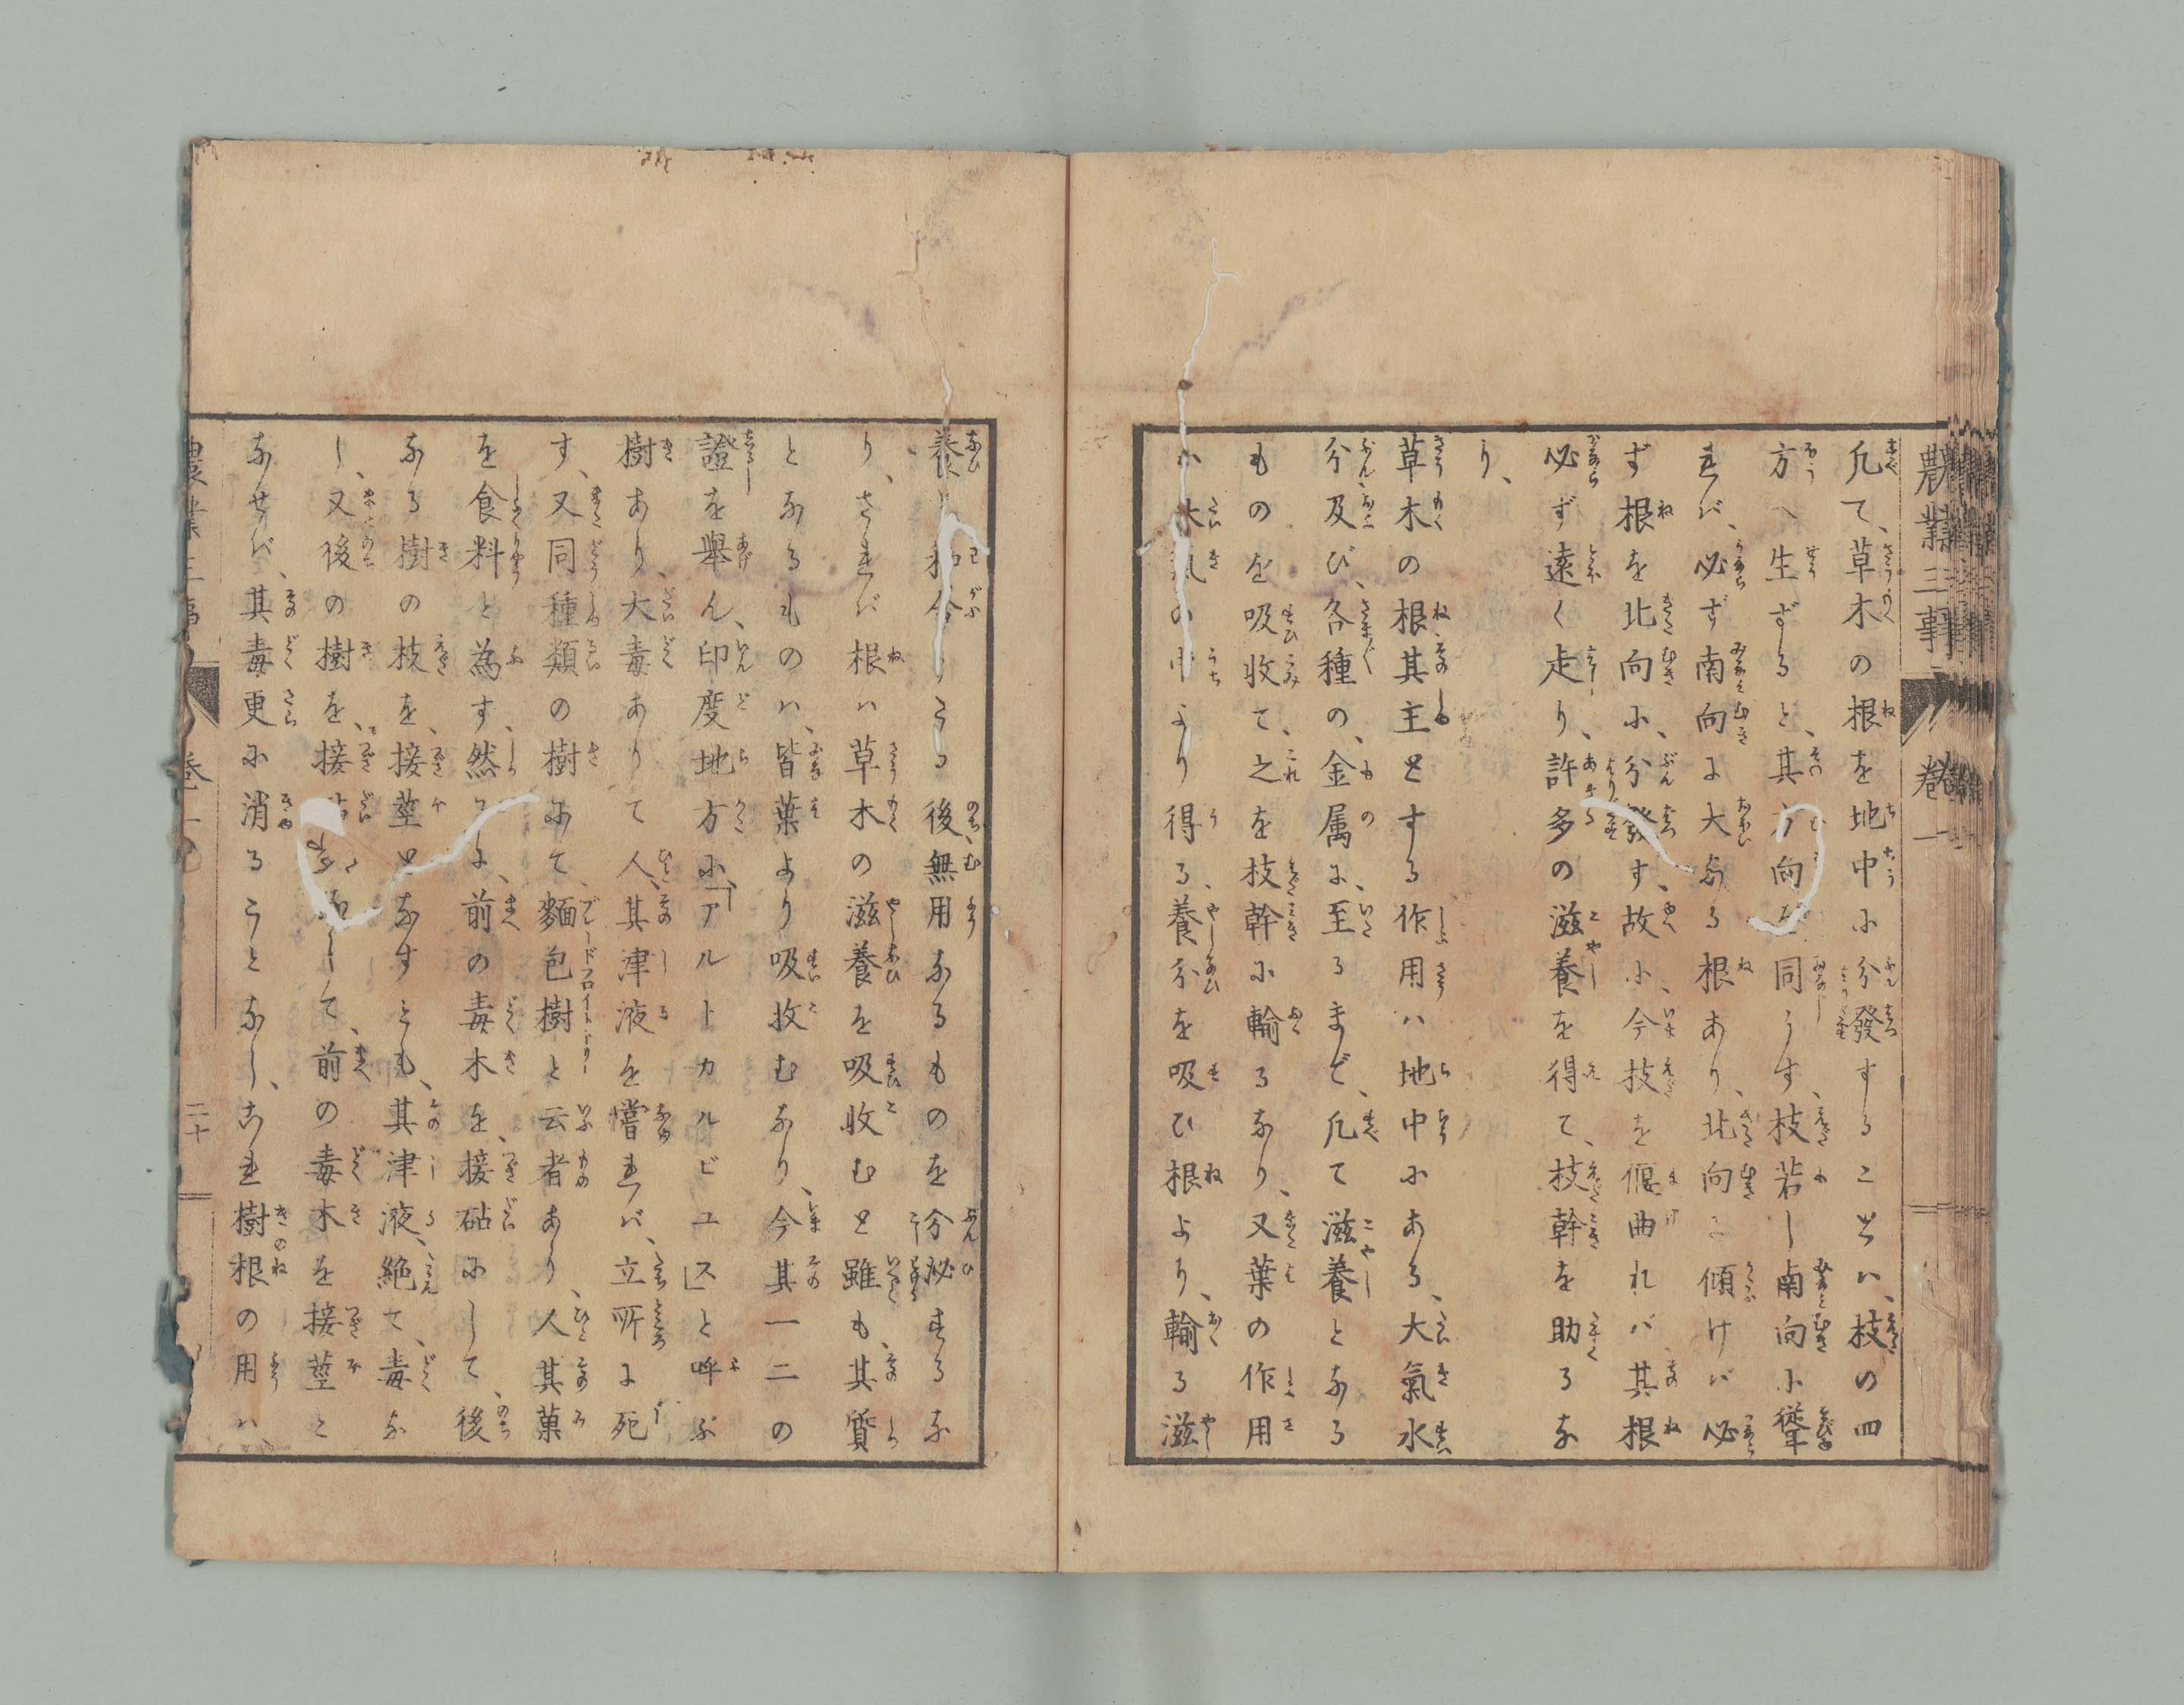 農業三事 卷一
凢て、草木の根を地中小分發することは、枝の四
方へ生ずると、其方向を同うす、枝若し南向小聳
れバ、必ず南向に大なる根あり、北向に傾けバ必
ず根を北向小、分發す、故小、今枝を偃曲れバ、其根
必ず遠く走り、許多の滋養を得て、枝幹を助るな
り、
草木の根其主とする作用ハ地中小ある、大氣水
分及び、各種の、金属に、至るまで、凢て滋養となる
ものを吸收て、之を枝幹小輸るなり、又葉の作用
ハ大氣の中より得る、養分を吸ひ根より、輸る滋
養と和合したる後、無用なるものを分泌するな
り、されバ根ハ草木の滋養を吸收むと雖も、其質
となるものハ、皆葉より吸收むなり、今其一二の
證を舉ん、印度地方小、「アルトカルビユス」と呼ぶ
樹あり、大毒ありて人、其津液を嘗れバ、立所に死
す、又同種類の樹にて、麵包樹と云者あり、人其菓
を食料と為す、然るに、前の毒木を、接砧小して、後
なる樹の枝を、接莖となすとも、其津液、絶て、毒な
し、又後の樹を、接砧して、前の毒木を接莖と
なせバ、其毒更小消ることなし、これ樹根の用ハ、
農業三事 卷一 二十